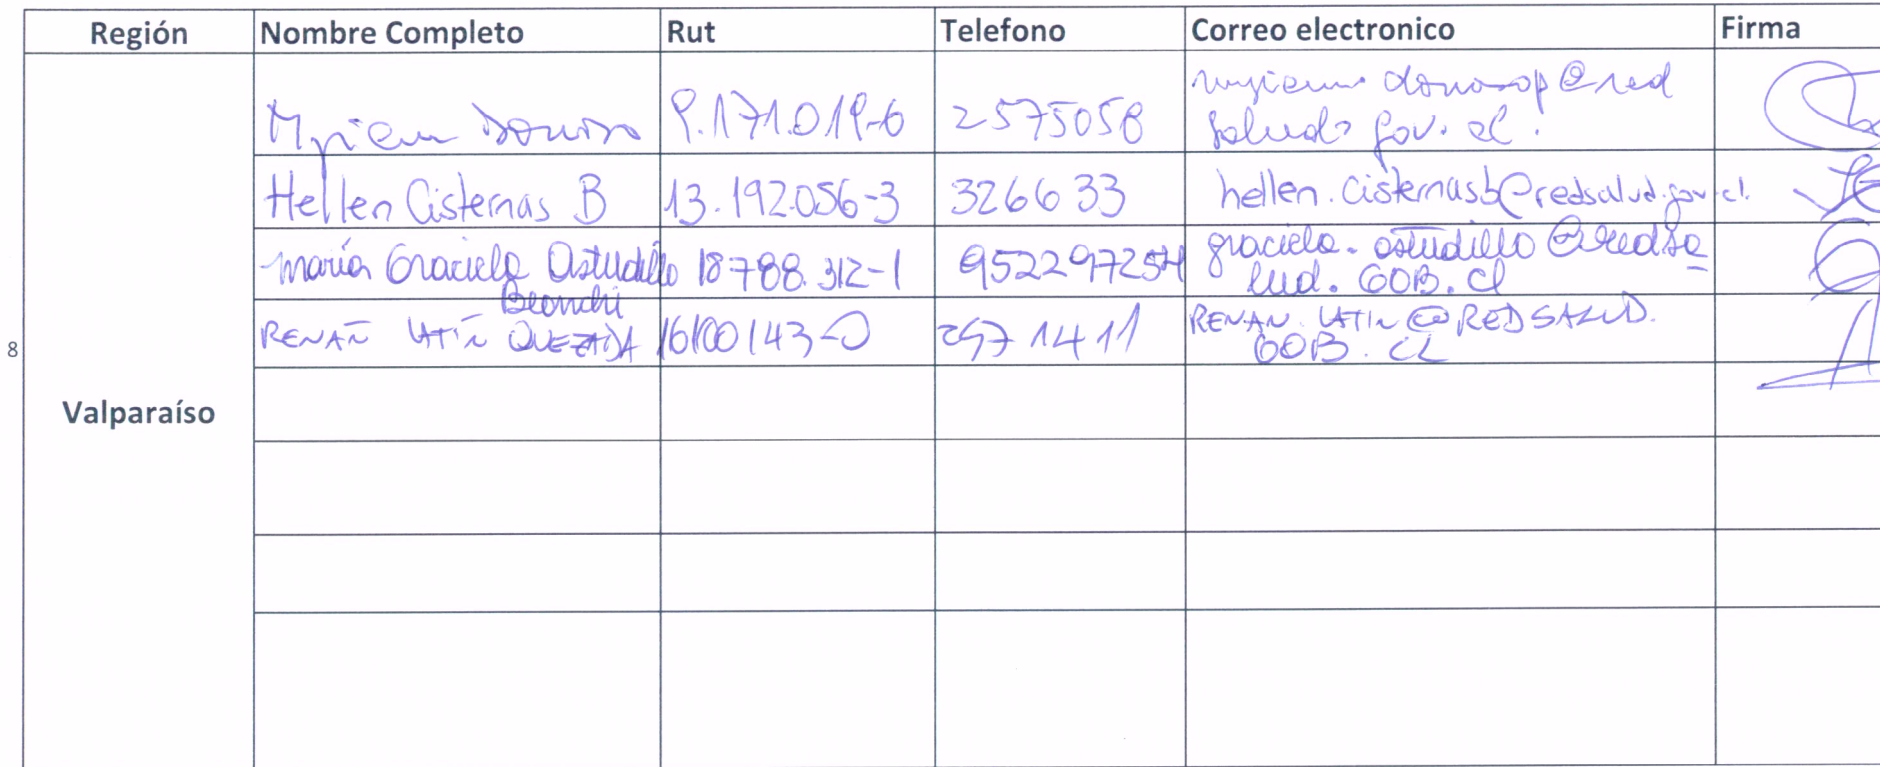 Región Nombre Completo Rut Telefono Correo electronico Firma
Myriam Donoso 9.171.019-6 2575058 myriam.donosop@red
salud.gov.cl.
Hellen Cisternas B 13.192.056-3 326633 hellen.cisternasb@redsalud.gov.cl.
María Graciela Astudillo 18788.312-1 952297254 graciela.astudillo@redsa
Bianchi lud.GOB.cl
RENAN LATIN QUEZADA 16100143-0 2571411 RENAN.LATIN@REDSALUD.
GOB.CL
8
Valparaíso